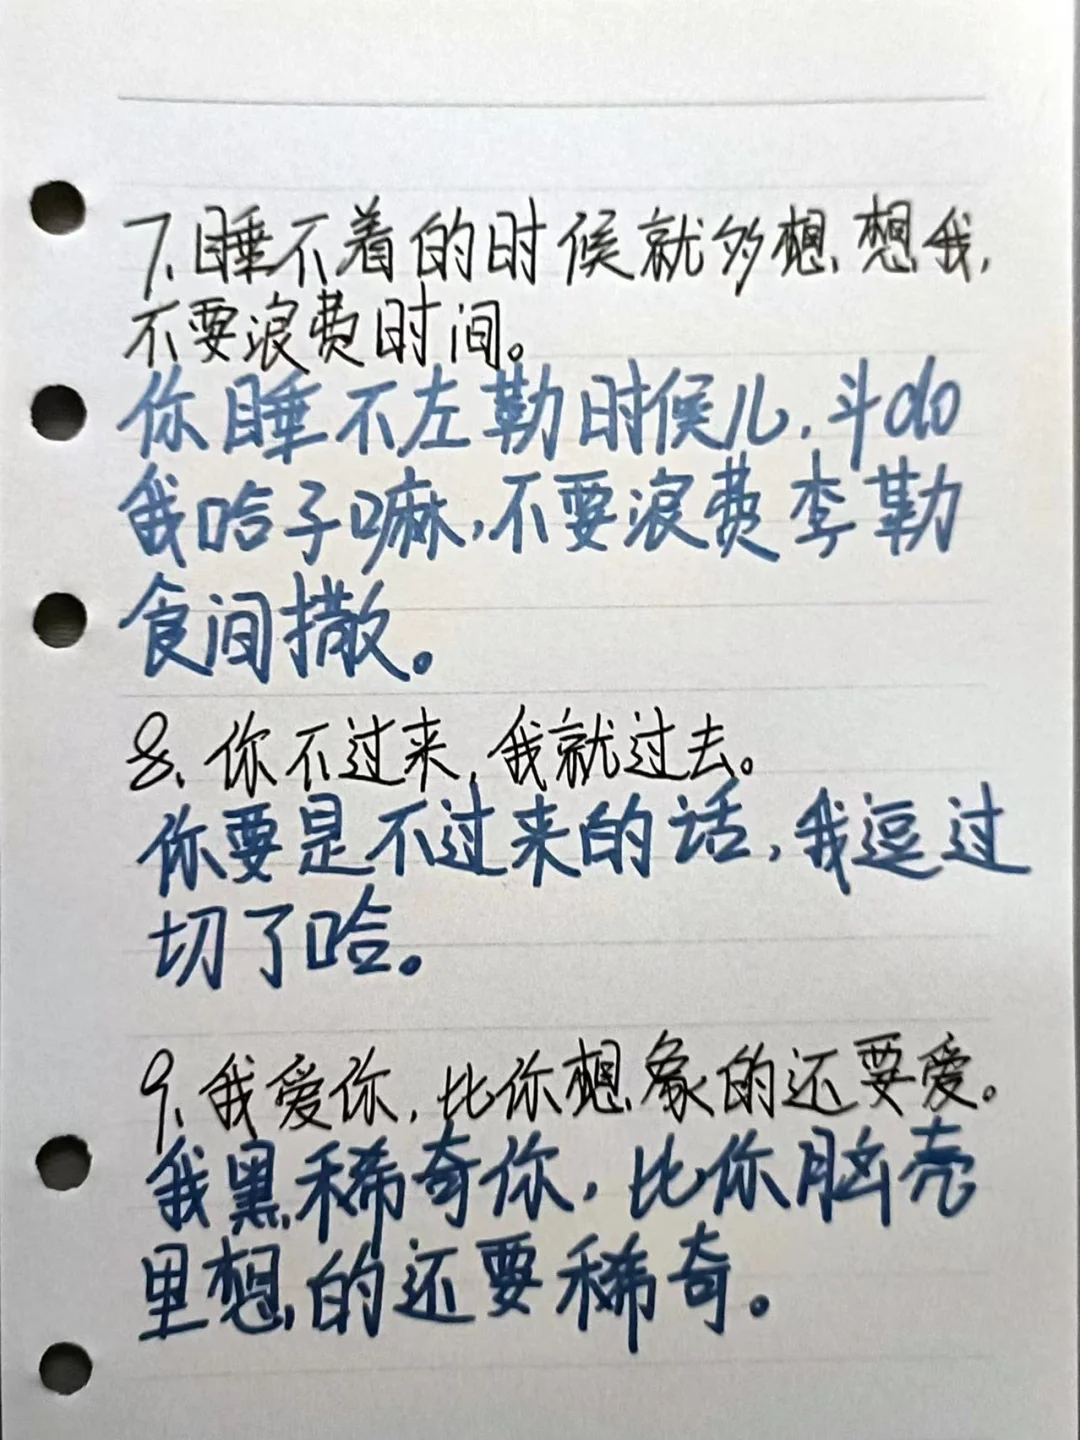 7、睡不着的时候就多想想我,
不要浪费时间。
你睡不左勒时候儿,斗do
我哈子嘛,不要浪费李勒
食间撒。
8、你不过来,我就过去。
你要是不过来的话,我逗过
切了哈。
9、我爱你,比你想象的还要爱。
我黑稀奇你,比你脑壳
里想的还要稀奇。